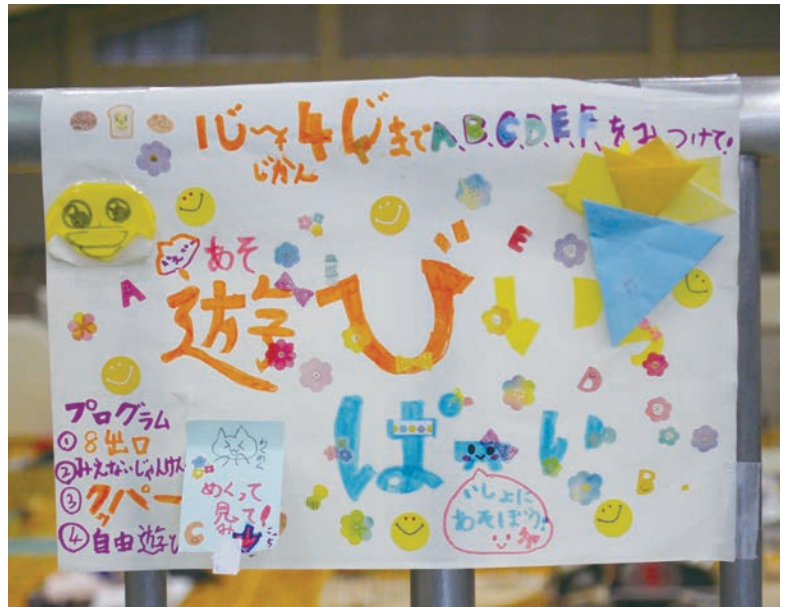 1じ〜4じまでA,B,C,D,E,F,をみつけて!
じかん
あそ
遊び
E
A
ぱい
B
B
プログラム
①8出口
②みえないじゃんけん
③グッパー
④自由遊び
わくわく
めくって
見て!
み
いしょに
あそぼう!